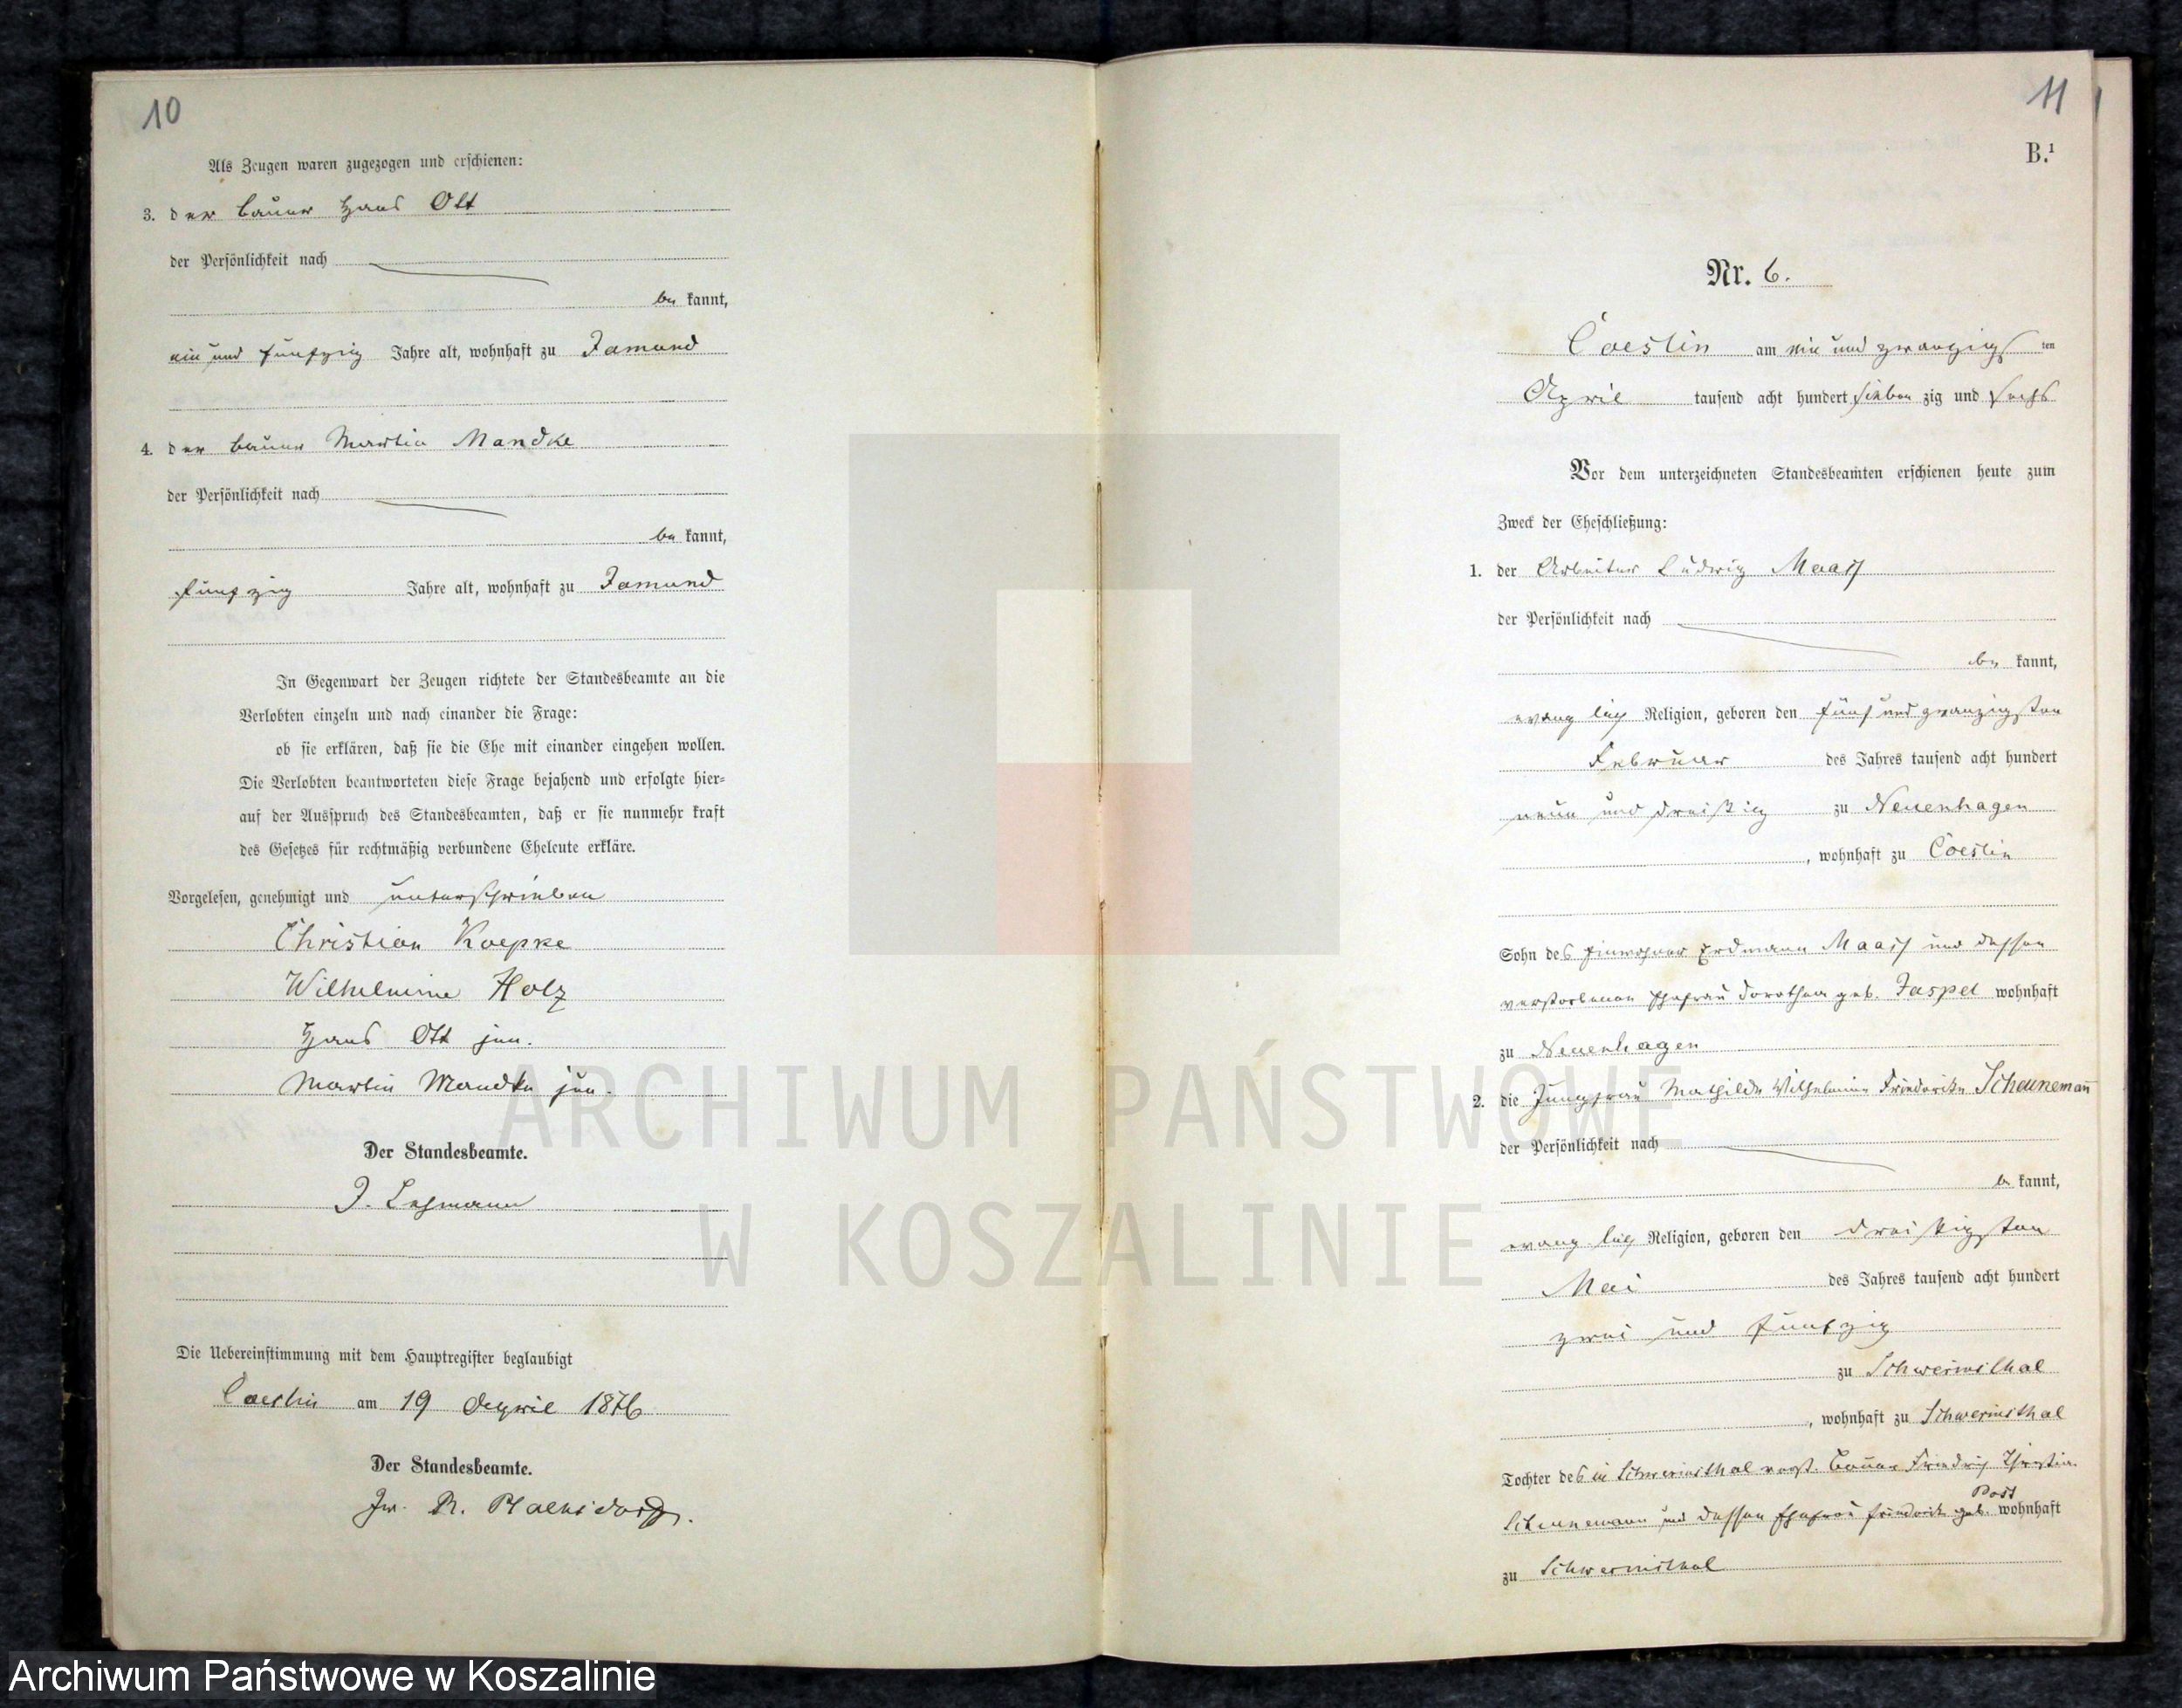 10
Als Zeugen waren zugezogen und erschienen:
3. der Bauer Hans Ott
der Persönlichkeit nach
be kannt,
ein und fünfzig Jahre alt, wohnhaft zu Jamund
4. der Bauer Martin Mandke
der Persönlichkeit nach
be kannt,
fünfzig Jahre alt, wohnhaft zu Jamund
In Gegenwart der Zeugen richtete der Standesbeamte an die
Verlobten einzeln und nach einander die Frage:
ob sie erklären, daß sie die Ehe mit einander eingehen wollen.
Die Verlobten beantworteten diese Frage bejahend und erfolgte hier-
auf der Ausspruch des Standesbeamten, daß er sie nunmehr kraft
des Gesetzes für rechtmäßig verbundene Eheleute erkläre.
Vorgelesen, genehmigt und unterschrieben
Christian Koepke
Wilhelmine Holz
Hans Ott jun.
Martin Mandke jun.
Der Standesbeamte.
J. Lehmann
Die Uebereinstimmung mit dem Hauptregister beglaubigt
Coeslin am 19 April 1876
Der Standesbeamte.
11
B.¹
Nr. 6.
Coeslin am ein und zwanzigsten
April tausend acht hundert sieben zig und sechs
Vor dem unterzeichneten Standesbeamten erschienen heute zum
Zweck der Eheschließung:
1. der Arbeiter Ludwig Maaß
der Persönlichkeit nach
be kannt,
evang luth Religion, geboren den fünf und zwanzigsten
Februar des Jahres tausend acht hundert
neun und dreißig zu Neuenhagen
, wohnhaft zu Coeslin
Sohn des Einwohner Erdmann Maaß und dessen
verstorbenen Ehefrau Dorothea geb. Jaspel wohnhaft
zu Neuenhagen
2. die Jungfrau Mathilde Wilhelmine Friederike Scheunemañ
der Persönlichkeit nach
be kannt,
evang luth Religion, geboren den dreißigsten
Mai des Jahres tausend acht hundert
zwei und fünfzig
zu Schwerinsthal
, wohnhaft zu Schwerinsthal
Tochter des in Schwerinsthal verst. Bauer Friedrich Christian
Scheunemann und dessen Ehefrau Friederike geb. Post wohnhaft
zu Schwerinsthal
ARCHIWUM PAŃSTWOWE
W KOSZALINIE
Archiwum Państwowe w Koszalinie